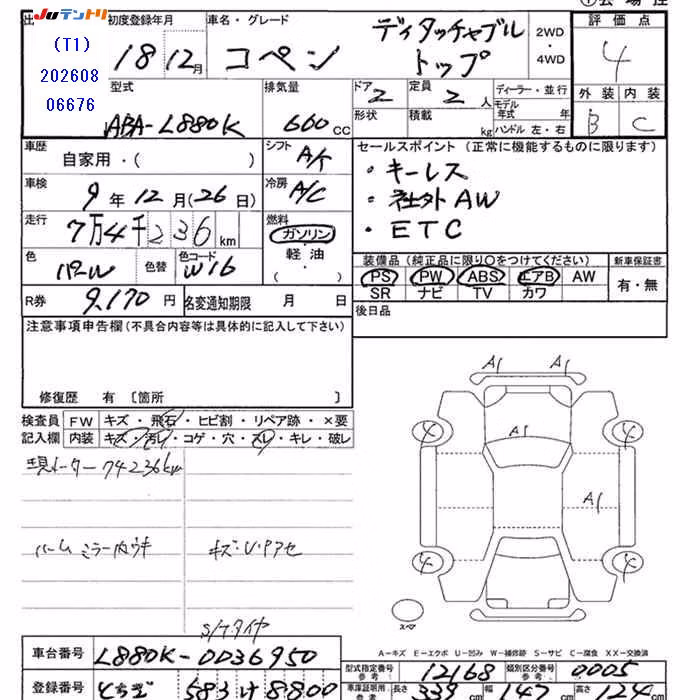 JUテントリ
(T1)
202608
06676
初度登録年月 車名・グレード
18 12月 コペン ディタッチャブル トップ
2WD
・
4WD
評価点
4
型式 排気量 ドア 2 定員 2人 ディーラー・並行
ABA-L880K 660cc 形状 積載 kg モデル年式 年 ハンドル 左・右
外装 内装
B C
車歴 自家用・( )
シフト A/
セールスポイント (正常に機能するものに限ります)
・キーレス
・社外AW
・ETC
車検 9年12月(26日)
冷房 A/C
走行 7万4千236km
燃料 ガソリン・軽油・( )
色 パール 色替 色コード W16
装備品 (純正品に限り○をつけてください) 新車保証書
PS PW ABS エアB AW 有・無
SR ナビ TV カワ
R券 9,170円 名変通知期限 月 日
後日品
注意事項申告欄(不具合内容等は具体的に記入して下さい)
修復歴 有 〔箇所 〕
検査員 FW キズ・飛石・ヒビ割・リペア跡・×要
記入欄 内装 キズ・汚レ・コゲ・穴・スレ・キレ・破レ
現メーター74236km
ルームミラー内ウキ
キズ・U・アセ
S/Tタイヤ
A1 A1
A1
A1
4 4
4 4
スペア
A-キズ E-エクボ U-凹み W-補修跡 S-サビ C-腐食 XX-交換済
車台番号 L880K-0036950
型式指定番号 参考 12168 類別区分番号 参考 0005
登録番号 とちぎ 583 け 8800
車庫証明用 参考 長さ 339cm 幅 147cm 高さ 124cm